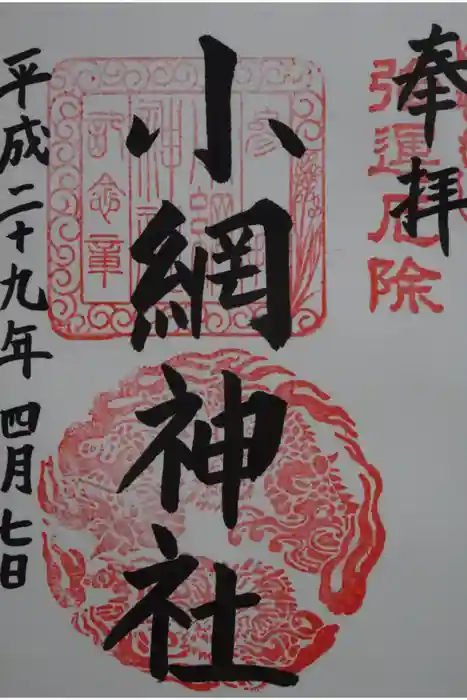 奉拝
強運厄除
小網神社
記念章
平成二十九年四月七日